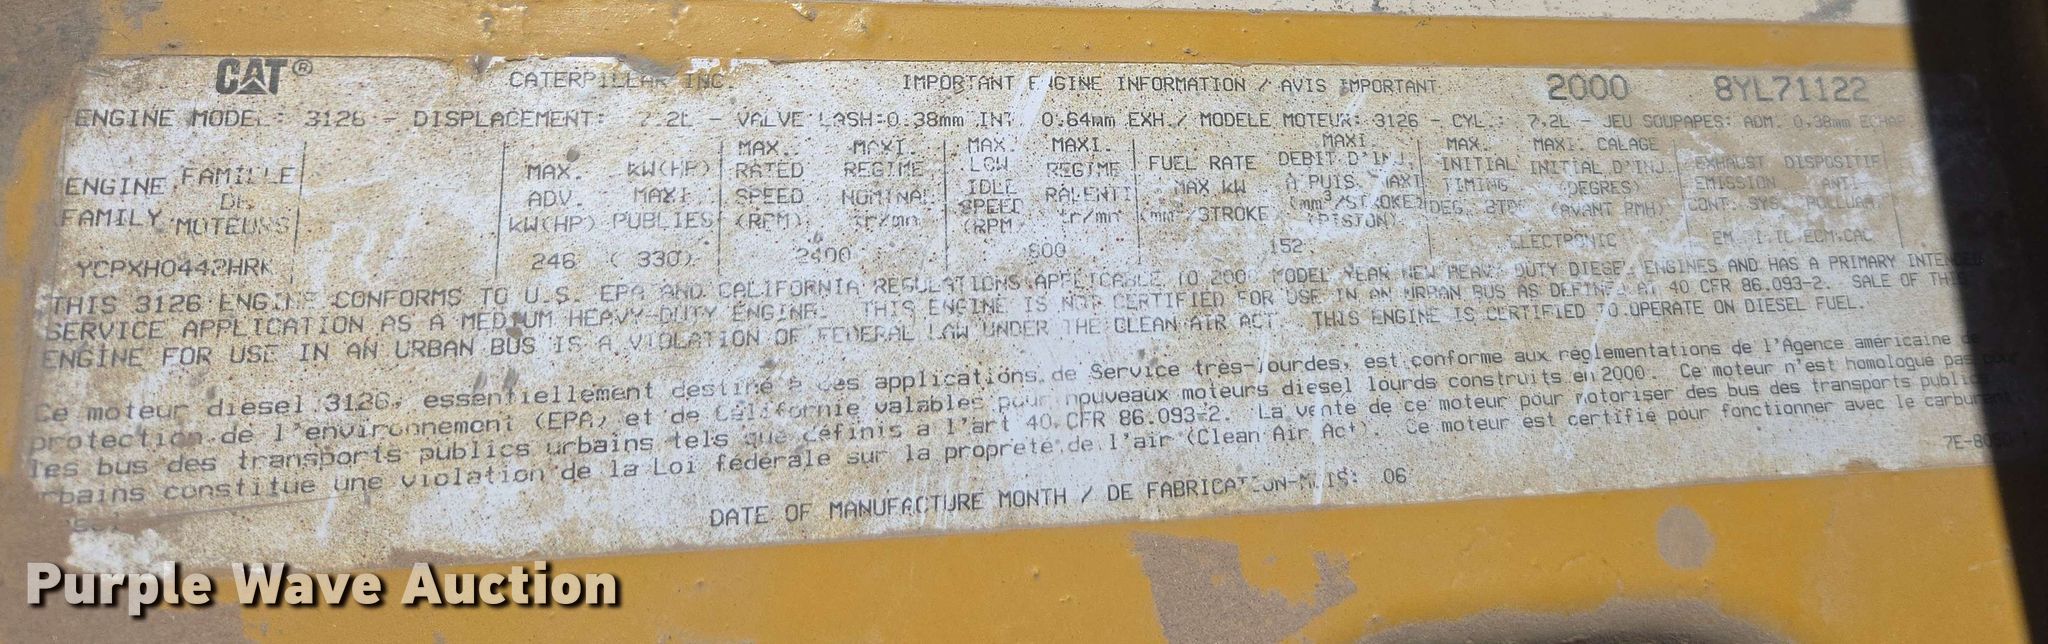 CAT® CATERPILLAR INC. IMPORTANT ENGINE INFORMATION / AVIS IMPORTANT 2000 8YL71122
ENGINE MODEL: 3126 - DISPLACEMENT: 7.2L - VALVE LASH:0.38mm INT 0.64mm EXH./ MODELE MOTEUR: 3126 - CYL.: 7.2L - JEU SOUPAPES: ADM. 0.38mm ECHAP
ENGINE FAMILY
FAMILLE DE MOTEURS
MAX. ADV. kW(HP)
kW(HP) MAXI PUBLIES
MAX. RATED SPEED (RPM)
MAXI. REGIME NOMINAL tr/mn
MAX. LOW IDLE SPEED (RPM
MAXI. REGIME RALENTI tr/mn
FUEL RATE MAX kW (mm³/STROKE)
MAXI DEBIT D'INJ. A PUIS. MAXI (mm³/STROKE) (PISTON)
MAX. INITIAL TIMING DEG. BTDC
MAXI. CALAGE INITIAL D'INJ. (DEGRES) (AVANT PMH)
EXHAUST EMISSION CONT. SYS.
DISPOSITIF ANTI- POLLUAN
YCPXH0442HRK 246 (330) 2400 600 152 ELECTRONIC EM,DI,TC,ECM,CAC
THIS 3126 ENGINE CONFORMS TO U.S. EPA AND CALIFORNIA REGULATIONS APPLICABLE TO 2000 MODEL YEAR NEW HEAVY DUTY DIESEL ENGINES AND HAS A PRIMARY INTENDED
SERVICE APPLICATION AS A MEDIUM HEAVY-DUTY ENGINE. THIS ENGINE IS NOT CERTIFIED FOR USE IN AN URBAN BUS AS DEFINED AT 40 CFR 86.093-2. SALE OF THIS
ENGINE FOR USE IN AN URBAN BUS IS A VIOLATION OF FEDERAL LAW UNDER THE CLEAN AIR ACT. THIS ENGINE IS CERTIFIED TO OPERATE ON DIESEL FUEL.
Ce moteur diesel 3126, essentiellement destiné à des applications de Service très-lourdes, est conforme aux réglementations de l'Agence américaine de
protection de l'environnement (EPA) et de Californie valables pour nouveaux moteurs diesel lourds construits en 2000. Ce moteur n'est homologué pas pour
les bus des transports publics urbains tels que définis a l'art 40 CFR 86.093-2. La vente de ce moteur pour motoriser des bus des transports publics
rbains constitue une violation de la Loi fédérale sur la propreté de l'air (Clean Air Act). Ce moteur est certifié pour fonctionner avec le carburant
7E-80
DATE OF MANUFACTURE MONTH / DE FABRICATION-MOIS: 06
Purple Wave Auction